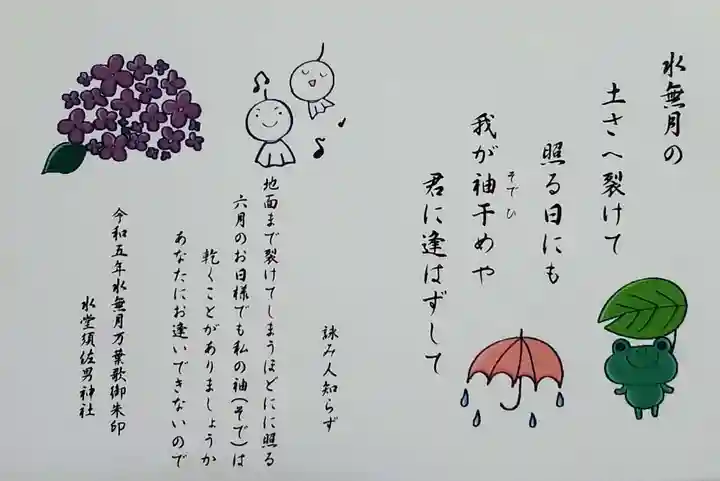 水無月の
土さへ裂けて
照る日にも
我が袖干めや
そでひ
君に逢はずして
詠み人知らず
地面まで裂けてしまうほどにに照る
六月のお日様でも私の袖(そで)は
乾くことがありましょうか
あなたにお逢いできないので
令和五年水無月万葉歌御朱印
水堂須佐男神社